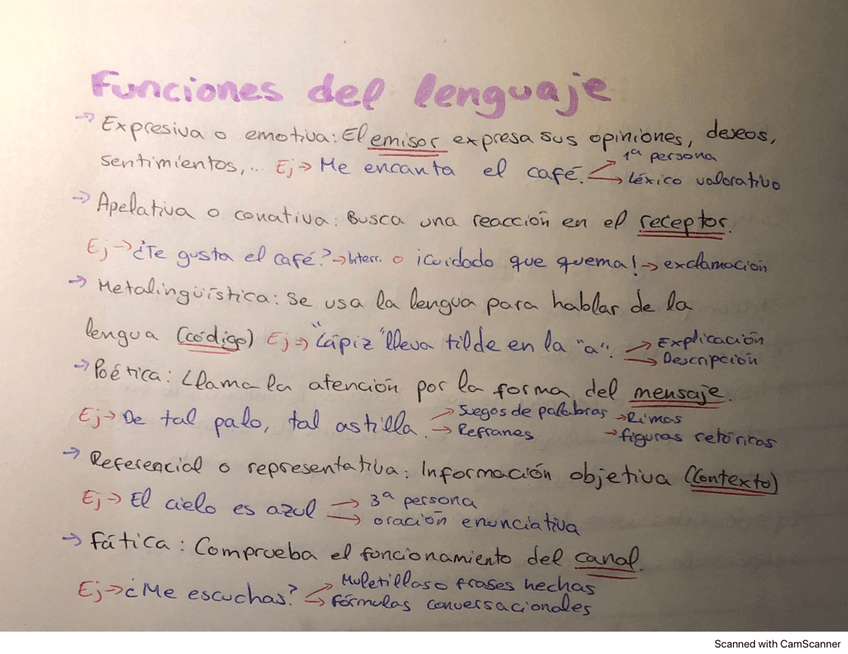 Funciones del lenguaje
→ Expresiva o emotiva: El emisor expresa sus opiniones, deseos,
sentimientos,... Ej → Me encanta el café. → 1ª persona
→ Léxico valorativo
→ Apelativa o conativa: Busca una reacción en el receptor.
Ej → ¿Te gusta el café? → Interr. o ¡cuidado que quema! → exclamación
→ Metalingüística: Se usa la lengua para hablar de la
lengua (código) Ej → "Lápiz" lleva tilde en la "a". → Explicación
→ Descripción
→ Poética: Llama la atención por la forma del mensaje.
Ej → De tal palo, tal astilla. → Juegos de palabras → Rimas
→ Refranes → figuras retóricas
→ Referencial o representativa: Información objetiva (Contexto)
Ej → El cielo es azul → 3ª persona
→ oración enunciativa
→ Fática: Comprueba el funcionamiento del canal.
Ej → ¿Me escuchas? → Muletillas o frases hechas
→ Fórmulas conversacionales
Scanned with CamScanner